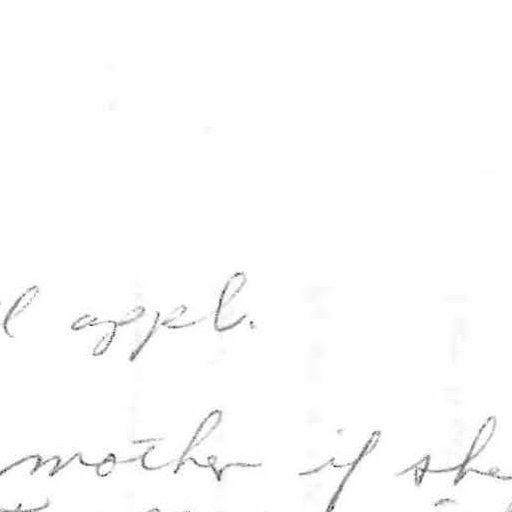 appl.
mother if she